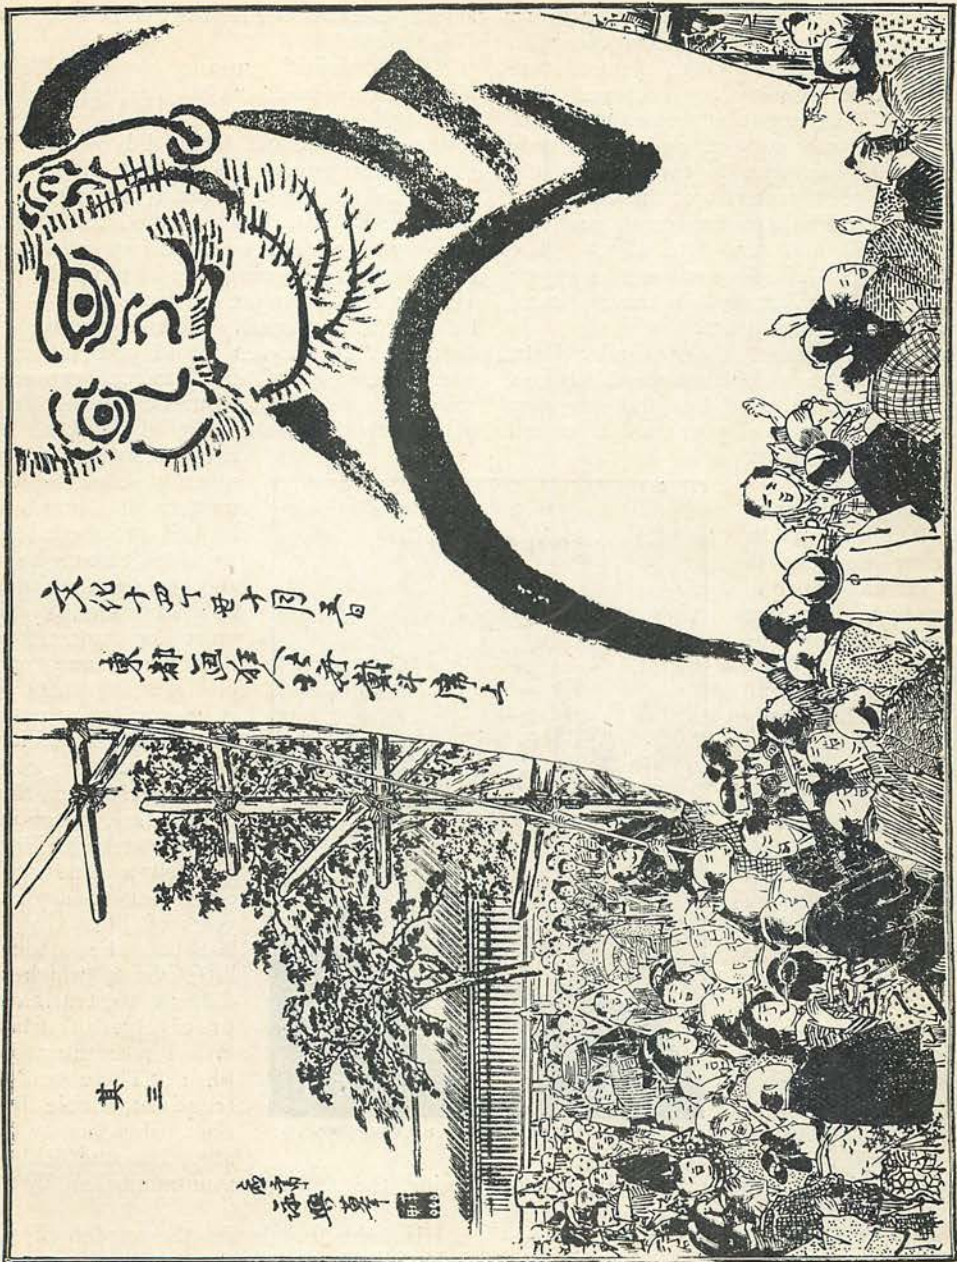 文化十四丁丑十月五日
東都画狂人北斎戴斗席上
其三